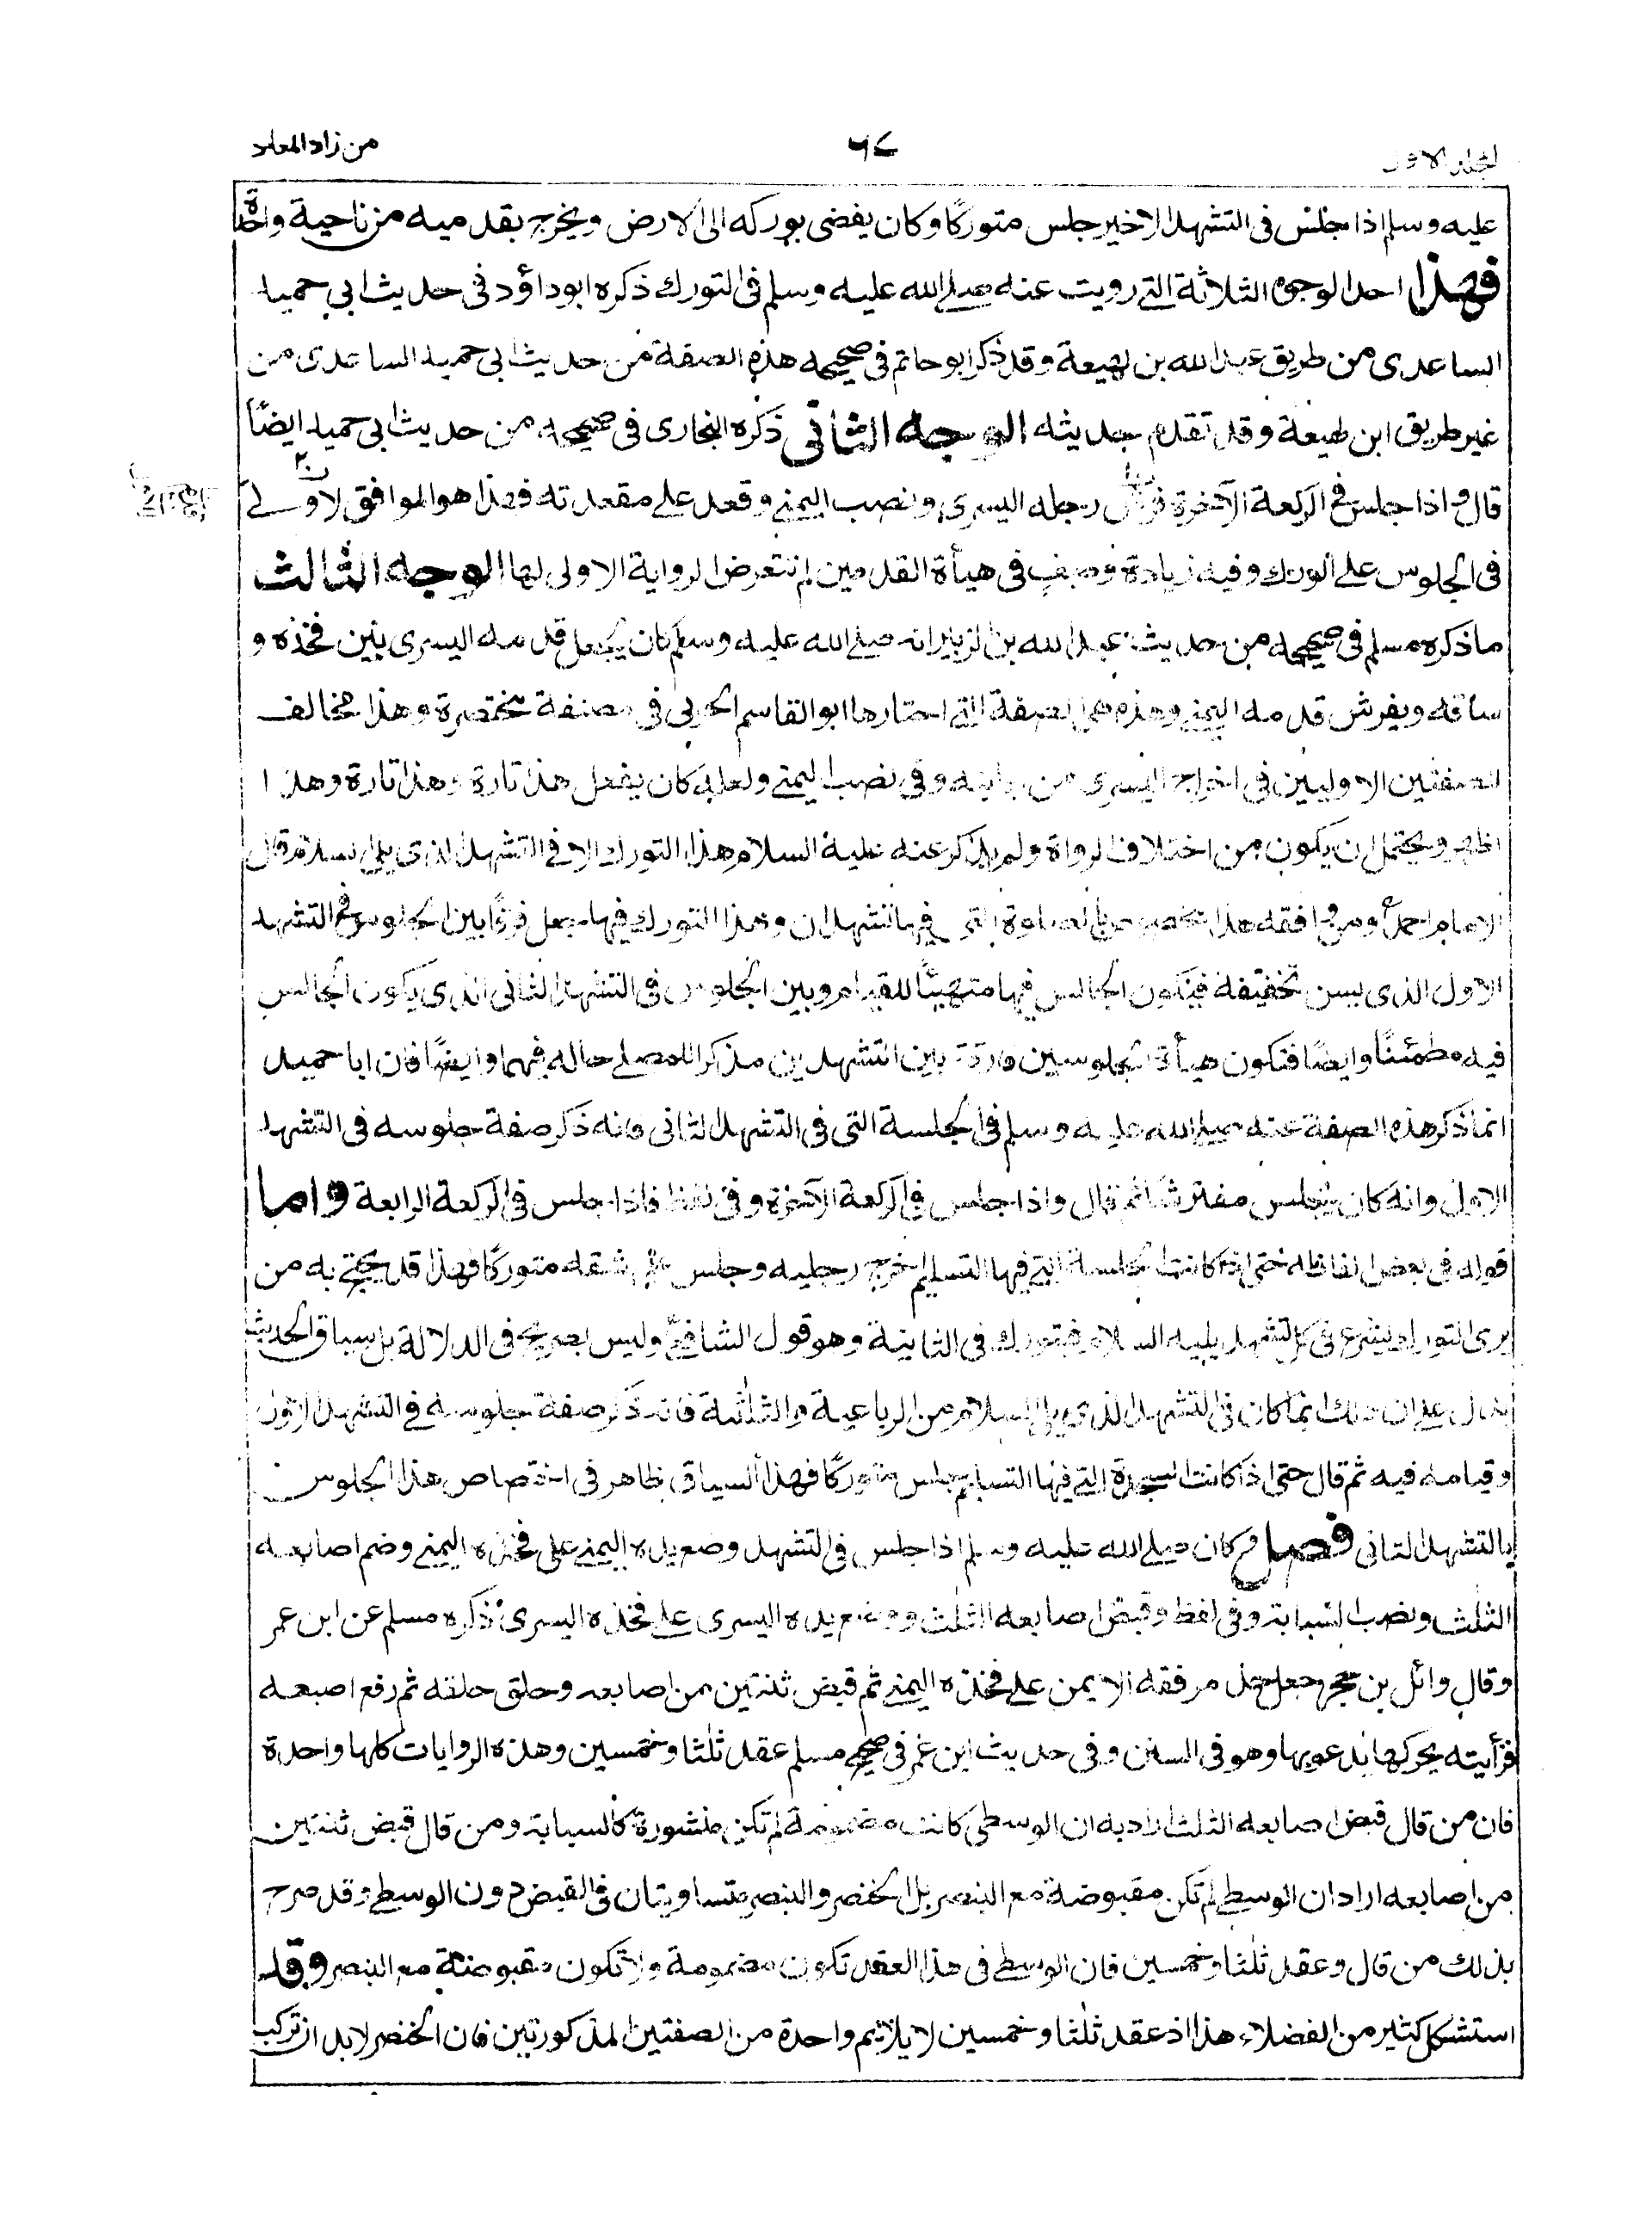 الجلد الاول
٦٧
من زاد المعاد
عليه وسلم اذا جلس فى التشهد الاخير جلس متوركًا وكان يفضى بوركه الى الارض ويخرج بقدميه من ناحية واحدة
فهذا احد الوجوه الثلاثة التى رويت عنه صلى الله عليه وسلم فى التورك ذكره ابو داؤد فى حديث ابى حميد
الساعدى من طريق عبد الله بن لهيعة وقد ذكر ابو حاتم فى صحيحه هذه الصفة من حديث ابى حميد الساعدى من
غير طريق ابن لهيعة وقد تقدم حديثه الوجه الثانى ذكره البخارى فى صحيحه من حديث ابى حميد ايضًا
قال واذا جلس فى الركعة الآخرة رجله اليسرى ونصب اليمنى وقعد على مقعدته فهذا هو الموافق لاولى
فى الجلوس على الورك وفيه زيادة وصف فى هيأة القدمين لم تتعرض الرواية الاولى لها الوجه الثالث
ما ذكره مسلم فى صحيحه من حديث عبد الله بن الزبير انه صلى الله عليه وسلم كان يجعل قدمه اليسرى بين فخذه و
ساقه ويفرش قدمه اليمنى وهذه هى الصفة التى اختارها ابو القاسم الخرقى فى مصنفة مختصرة وهذا مخالف
للصفتين الاوليين فى اخراج اليسرى من جانبه وفى نصب اليمنى ولعله كان يفعل هذا تارة وهذا تارة وهذا ا
ظهر ويحتمل ان يكون من اختلاف الرواة ولم يذكر عنه عليه السلام هذا التورك الا فى التشهد الذى يلى السلام قال
الامام احمد ومن وافقه هذا مخصوص بالصلوة التى فيها تشهدان وهذا التورك فيها جعل فرقًا بين الجلوس فى التشهد
الاول الذى يسن تخفيفه فيكون الجالس فيها متهيئًا للقيام وبين الجلوس فى التشهد الثانى الذى يكون الجالس
فيه مطمئنًا وايضًا فتكون هيأة الجلوسين فارقة بين التشهدين مذكرا للمصلى حاله فيهما وايضًا فان ابا حميد
انما ذكر هذه الصفة عنه صلى الله عليه وسلم فى الجلسة التى فى التشهد الثانى فانه ذكر صفة جلوسه فى التشهد
الاول وانه كان يجلس مفترشًا ثم قال واذا جلس فى الركعة الآخرة وفى لفظ فاذا جلس فى الركعة الرابعة واما
قوله فى بعض الفاظه حتى اذا كانت الجلسة التى فيها التسليم اخرج رجليه وجلس على شقه متوركًا فهذا قد يحتج به من
يرى التورك يشرع فى كل تشهد يليه السلام فيتورك فى الثانية وهو قول الشافعى وليس بصريح فى الدلالة بل سياق الحديث
يدل على ان ذلك انما كان فى التشهد الذى يلى السلام من الرباعية والثلاثية فانه ذكر صفة جلوسه فى التشهد الاول
وقيامه فيه ثم قال حتى اذا كانت السجدة التى فيها التسليم جلس متوركًا فهذا السياق ظاهر فى اختصاص هذا الجلوس
بالتشهد الثانى فصل وكان صلى الله عليه وسلم اذا جلس فى التشهد وضع يده اليمنى على فخذه اليمنى وضم اصابعه
الثلث ونصب السبابة وفى لفظ وقبض اصابعه الثلث ووضع يده اليسرى على فخذه اليسرى ذكره مسلم عن ابن عمر
وقال وائل بن حجر جعل حد مرفقه الايمن على فخذه اليمنى ثم قبض ثنتين من اصابعه وحلق حلقه ثم رفع اصبعه
فرأيته يحركها يدعو بها وهو فى السنن وفى حديث ابن عمر فى صحيح مسلم عقد ثلثا وخمسين وهذه الروايات كلها واحدة
فان من قال قبض اصابعه الثلث اراد به ان الوسطى كانت مضمومة لم تكن منشورة كالسبابة ومن قال قبض ثنتين
من اصابعه اراد ان الوسطى لم تكن مقبوضة مع البنصر بل الخنصر والبنصر متساويتان فى القبض دون الوسطى وقد صرح
بذلك من قال وعقد ثلثا وخمسين فان الوسطى فى هذا العقد تكون مضمومة ولا تكون مقبوضة مع البنصر وقد
استشكل كثير من الفضلاء هذا اذ عقد ثلثا وخمسين لا يلائم واحدة من الصفتين المذكورتين فان الخنصر لا بد ان تركب